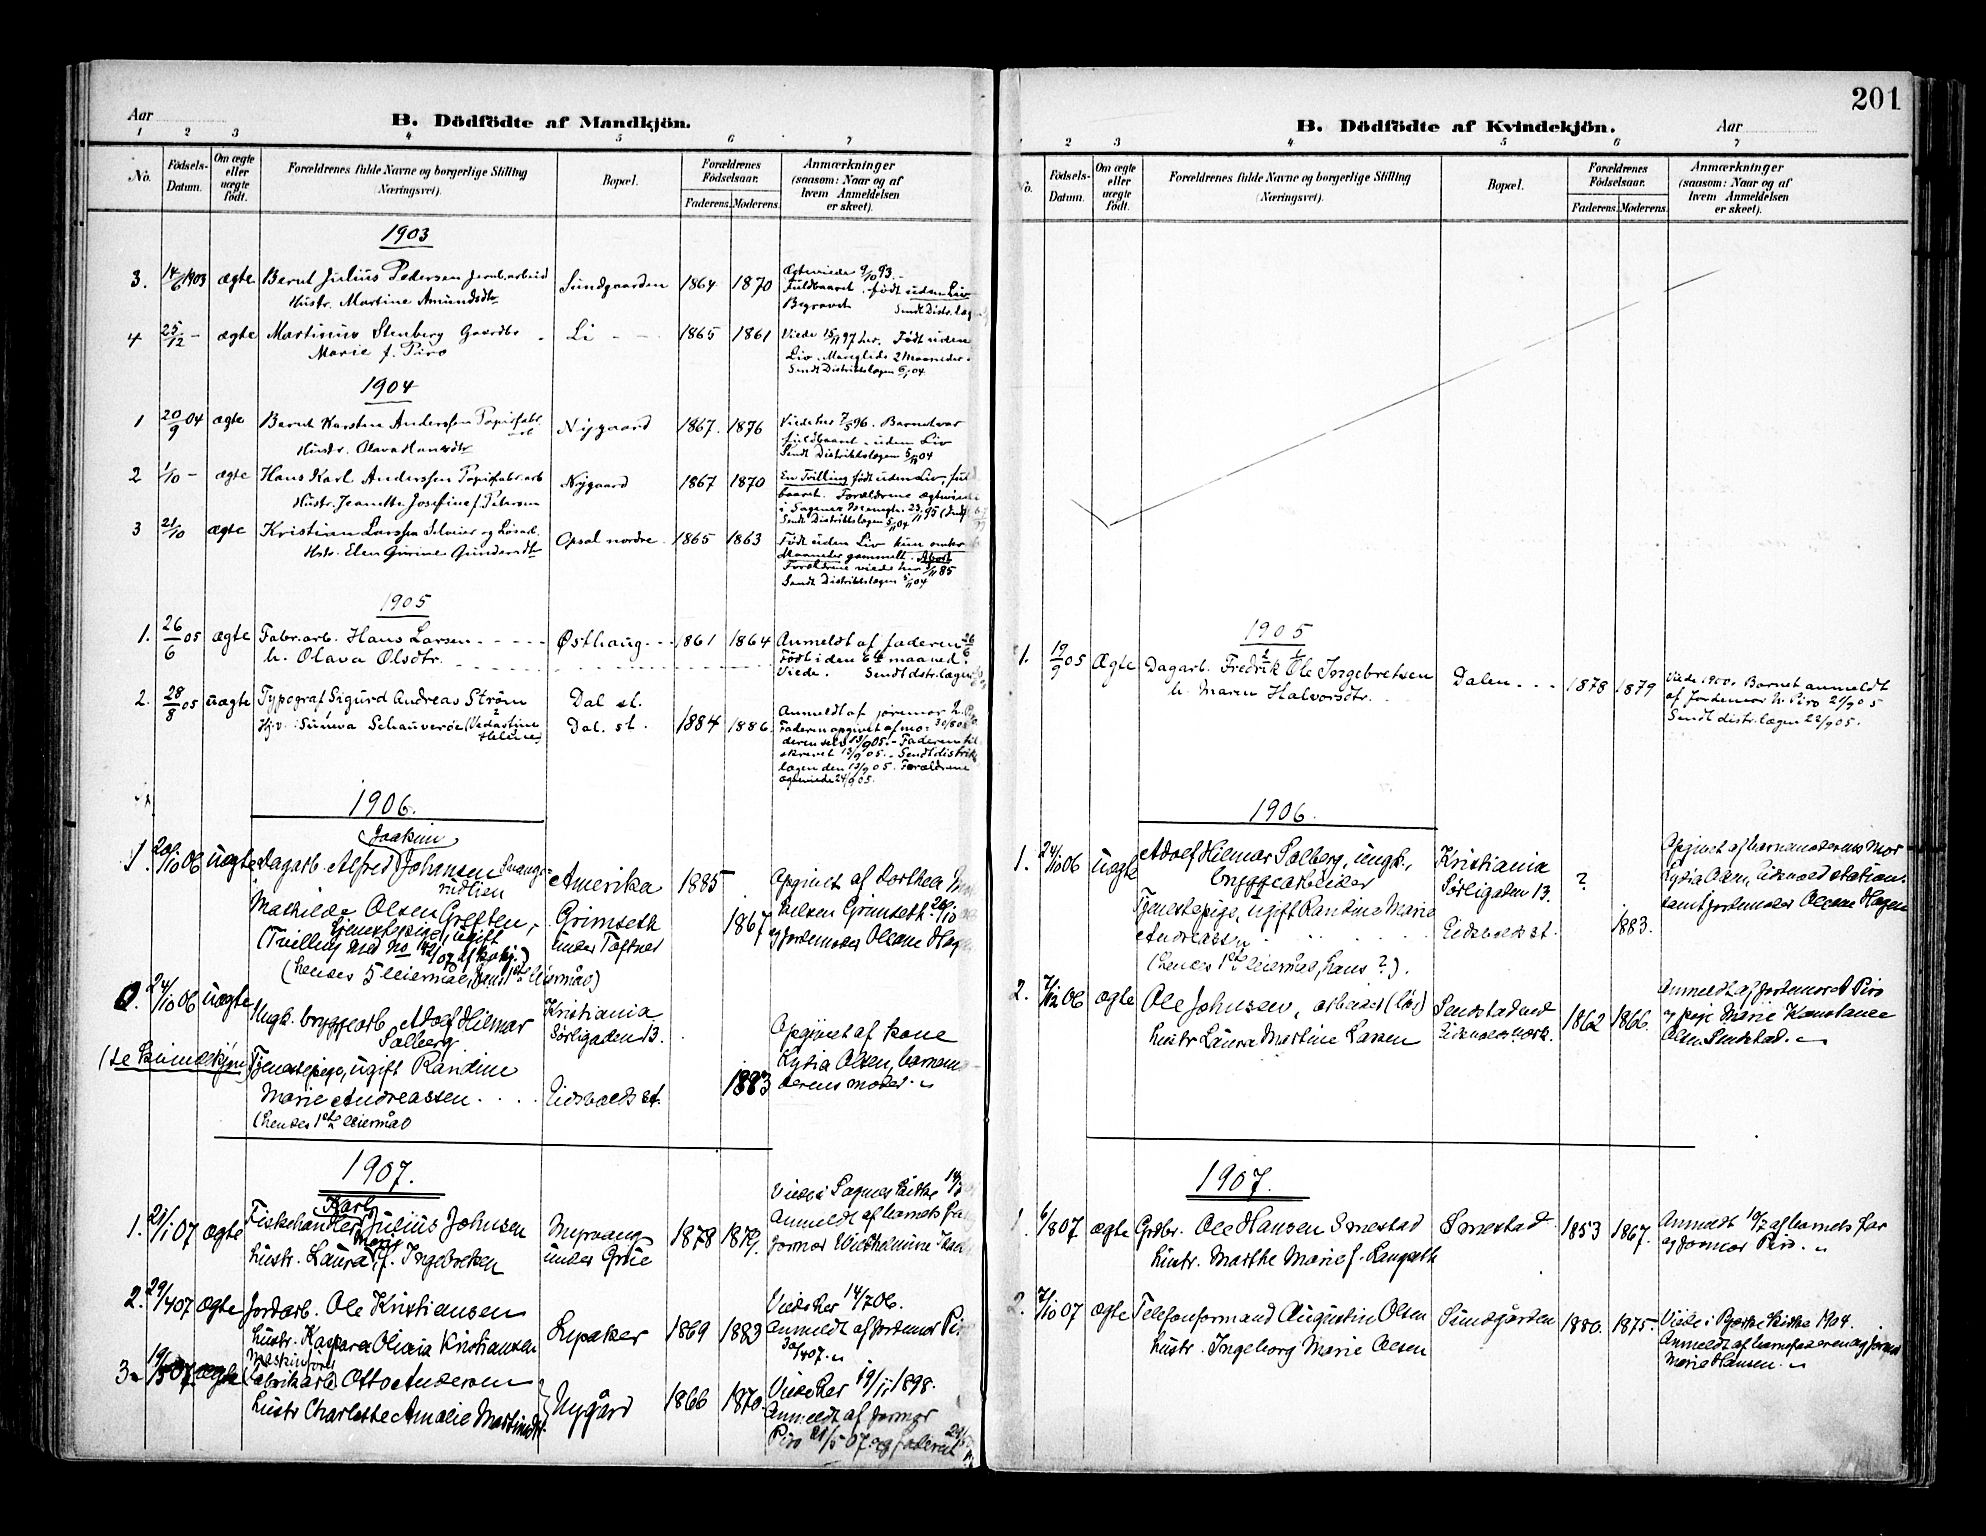 201
Aar
B. Dödfödte af Mandkjön.
1 2 3 4 5 6 7
No.
Födsels-Datum.
Om ægte eller uægte födt.
Forældrenes fulde Navne og borgerlige Stilling (Næringsvei).
Bopæl.
Forældrenes Födselsaar.
Faderens. Moderens.
Anmærkninger (saasom: Naar og af hvem Anmeldelsen er skeet).
1903
3. 14/6 1903 ægte Bernt Julius Pedersen jernb.arbeid Sundgaarden 1864 1870 Ægteviede 9/10 93.
Hustr. Martine Amundsdtr Fuldbaaret. født uden Liv
Begravet Sendt Distr.læg
4 25/12 - ægte Martinius Stenberg Gaardbr. Li 1865 1861 Viede 15/11 97 her. Født uden
Marie f. Piro Liv. Mangleds 2 Maaneder.
Sendt Distriktslægen 5/1 04
1904
1 20/9 04 ægte Bernt Karsten Anderssen Papirfabr. arb Nygaard 1867. 1876 Viede her 7/5 96. Barnet var
Hustr. Olava Hansdtr fuldbaaret - uden Liv
Sendt Distriktslægen 5/11 04
2 1/10 - ægte Hans Karl Anderssen Papirfabr.arb Nygaard 1867 1870 En Tvilling født uden Liv, ful
Hustr. Jeanette Josefine f. Petersen baaret. Forældrene ægteviede
Sendt Distriktslægen 5/11 04
3 21/10 ægte Kristian Larssen Selveier og Opsal nordre 1865 1863 Født uden Liv kun omkr
Hstr. Elen Gurine Gundersdtr Maaneder gammelt. Abort
Forældrene viede her 85
Sendt Distriktslægen 5/11 04
1905
1. 26/6 05 ægte Fabr.arb. Hans Larsen Østhaug 1861 1864 Anmeldt af faderen 26/6
h. Olava Olsdtr. Født i den 6te maaned.
Viede. Sendt distr.lægen
2. 28/8 05 uægte Typograf Sigurd Andreas Strøm Dal st.
Sunva Schauverøe (Vedastine Heline) Dal. st. 1884 1886 Anmeldt af jormor
Faderen opgivet af mo-
deren selv 13/9 05. - Faderen til-
skrevet 13/9 05. - Sendt distrikts
lægen den 13/9 05. Forældrene
ægteviede 24/9 05.
1906.
1. 26/10 06 uægte Dagarb. Alfred (Joakim) Johansen Amerika 1885 Opgivet af Dorthea
Mathilde Olsen Greften, Grimseth 1867 Nilsen Grimseth 26/10
Tjenestepige, ugift under Toftner og jordemoder Oleane Hagen
(Tvilling med no
(hendes 5 leiermåal, hans 1ste leiermåal)
2. 24/10 06 uægte Ungk. bryggearb. Adolf Hilmar Solberg Kristiania Sörligaden 13. Opgivet af kone
(se kvindekjøn Tjenestepige, ugift Randine Lydia Olsen, barnemo-
Marie Andreassen Eidsvold st. 1883 derens moder.
(hendes 1ste leiermåal
1907.
1. 21/1 07 ægte Fiskehandler Karl Julius Johnsen Myrvang 1878 1879. Viede i Sagnes kirke
hustr. Laura Marie f. Ingebretsen under Grue Anmeldt af barnets far og
jormor Vilhelmine
2. 29/4 07 ægte Jordarb. Ole Kristiansen Lepaker 1869 1883 Viede her 14/7 06.
hustr. Kaspara Olivia Kristiansen Anmeldt af jordemor Piro
30/4 07.
3. 19/5 07 ægte Maskinfører fabrikarb. Otto Andersen Nygård 1866 1870 Viede her 19/11 1898.
hustr Charlotte Amalie Martinsdtr. Anmeldt af jormor
Piro 21/5 07 og faderen
B. Dödfödte af Kvindekjön.
Aar
1 2 3 4 5 6 7
No.
Födsels-Datum.
Om ægte eller uægte födt.
Forældrenes fulde Navne og borgerlige Stilling (Næringsvei).
Bopæl.
Forældrenes Födselsaar.
Faderens. Moderens.
Anmærkninger (saasom: Naar og af hvem Anmeldelsen er skeet).
1905
1. 19/9 05 Ægte Dagarb. Fredrik Ole Ingebretsen Dalen 1878 1879 Viede 1900. Barnet anmeldt
h. Maren Halvorsdtr. af Jordemor h. Piro 21/9 05
Sendt distr.lægen 22/9 05.
1906.
1. 24/10 06 uægte Adolf Hilmar Solberg, ungk., Kristiania ? Opgivet af barnemoderens mor
bryggearbeider Sörligaden 13. Lydia Olsen, Eidsvold station.
Tjenestepige, ugift Randine Marie Andreassen Eidsvold st. 1883. samt jordemoder Oleane Hagen
(hendes 1ste leiermåal, hans ?).
2. 7/12 06 ægte Ole Johnsen, arbeider (løs) Sendstad ved 1862 1866. Anmeldt af jordemoder Piro
hustr Laura Martine Larsen Eidsvold verk. og pige Marie Konstance
Olsen Sendstad.
1907.
1. 6/8 07 ægte Grdbr. Ole Hansen Smestad Smestad 1853 1867. Anmeldt af barnets far
hustr. Marthe Marie f. Langseth og jormor Piro.
2. 7/10 07 ægte Telefonformand Augustin Olsen Sundgården 1880. 1875 Viede i Kirke 1904.
hustr. Ingeborg Marie Olsen Anmeldt af barnefaderen og jormor
Marie Hansen.